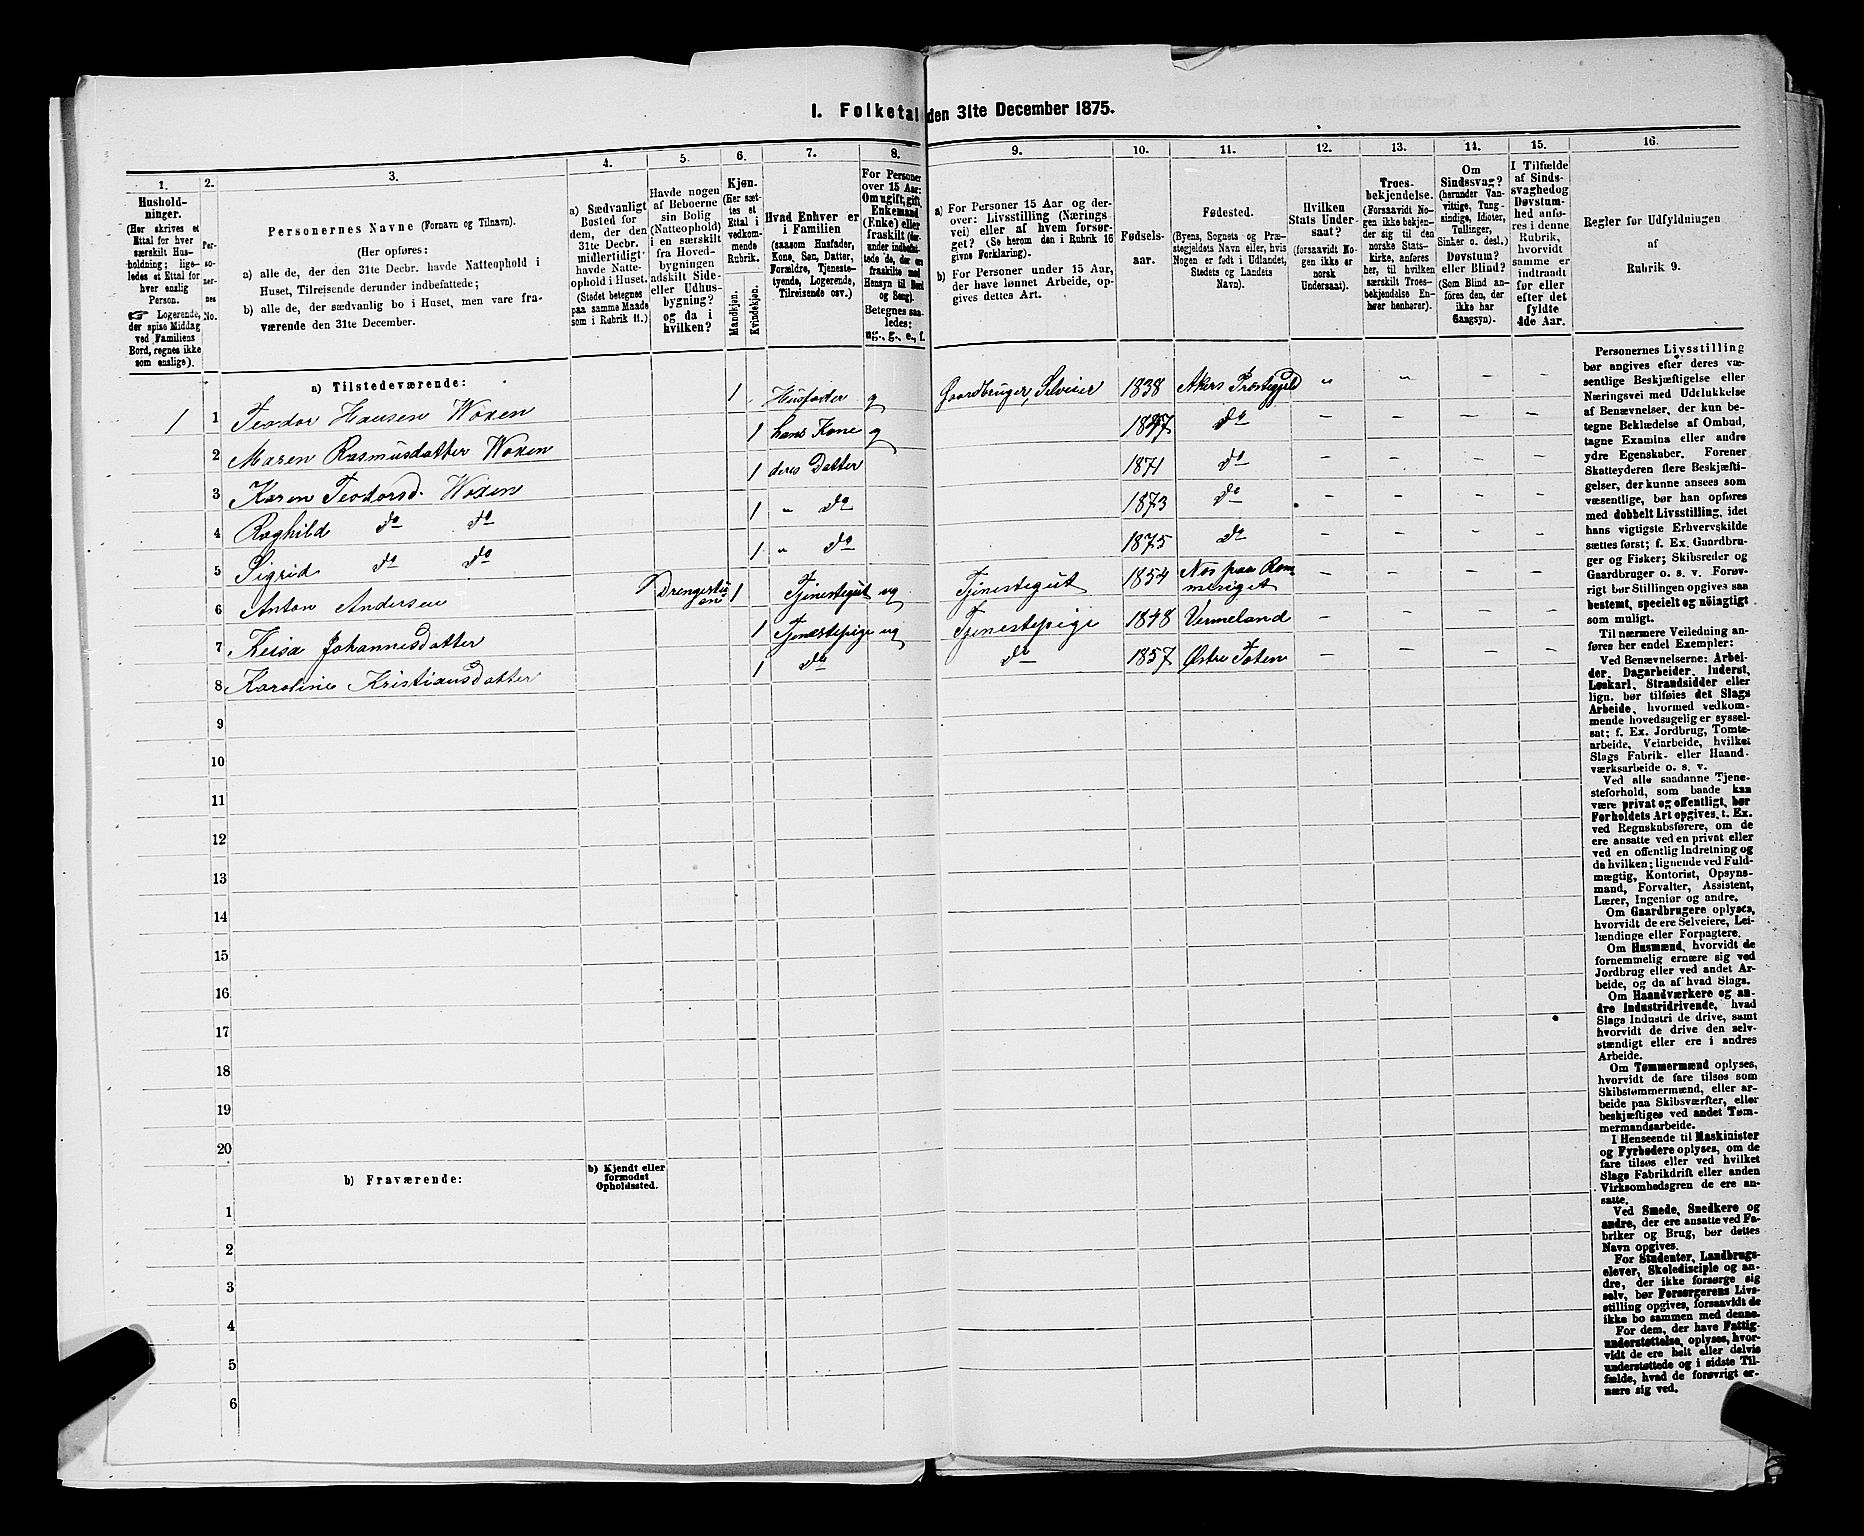 I. Folketal den 31te December 1875.
1.
Hushold-
ninger.
(Her skrives et
Ettal for hver
særskilt Hus-
holdning; lige-
ledes et Ettal for
hver enslig
Person.
☞ Logerende,
der spise Middag
ved Familiens
Bord, regnes ikke
som enslige).
2.
Per-
so-
ner-
nes
No.
3.
Personernes Navne (Fornavn og Tilnavn).
(Her opføres:
a) alle de, der den 31te Decbr. havde Natteophold i
Huset, Tilreisende derunder indbefattede;
b) alle de, der sædvanlig bo i Huset, men vare fra-
værende den 31te December.
4.
a) Sædvanligt
Bosted for
dem, der den
31te Decbr.
midlertidigt
havde Natte-
ophold i Huset.
(Stedet betegnes
paa samme Maade
som i Rubrik 11.)
5.
Havde nogen
af Beboerne
sin Bolig
(Natteophold)
i en særskilt
fra Hoved-
bygningen
adskilt Side-
eller Udhus-
bygning?
og da i
hvilken?
6.
Kjøn.
(Her sæt-
tes et
Ettal i
vedkom-
mende
Rubrik.
Mandkjøn.
Kvindekjøn.
7.
Hvad Enhver er
i Familien
(saasom Husfader,
Kone, Søn, Datter,
Forældre, Tjeneste-
tyende, Logerende,
Tilreisende osv.)
8.
For Personer
over 15 Aar:
Om ugift, gift,
Enkemand
(Enke) eller
fraskilt (der-
under indbefat-
tede de, der ere
fraskilte med
Hensyn til Bord
og Seng).
Betegnes saa-
ledes:
ug., g., e., f.
9.
a) For Personer 15 Aar og der-
over: Livsstilling (Nærings
vei) eller af hvem forsør-
get? (Se herom den i Rubrik 16
givne Forklaring).
b) For Personer under 15 Aar,
der have lønnet Arbeide, op-
gives dettes Art.
10.
Fødsels-
aar.
11.
Fødested.
(Byens, Sognets og Præ-
stegjeldets Navn eller, hvis
Nogen er født i Udlandet,
Stedets og Landets
Navn).
12.
Hvilken
Stats Under-
saat?
(forsaavidt No-
gen ikke er
norsk
Undersaat).
13.
Troes-
bekjendelse.
(Forsaavidt No-
gen ikke bekjen-
der sig til den
norske Stats-
kirke, anføres
her, til hvilken
særskilt Troes-
bekjendelse En-
hver henhører).
14.
Om
Sindssvag?
(herunder Van-
vittige, Tung-
sindige, Idioter,
Tullinger,
Sinker o. desl.)
Døvstum?
eller Blind?
(Som Blind an-
føres den, der
ikke har
Gangsyn).
15.
I Tilfælde
af Sinds-
svaghed og
Døvstum-
hed anfø-
res i denne
Rubrik,
hvorvidt
samme er
indtraadt
før eller
efter det
fyldte
4de Aar.
16.
Regler før Udfyldningen
af
Rubrik 9.
a) Tilstedeværende:
1 1 Teodor Hansen Woxen 1 Husfader g Gaardbruger, Selveier 1838 Akers Præstegjeld " " - -
2 Maren Rasmusdatter Woxen 1 hans Kone g 1847 do - - - -
3 Karen Teodorsd. Woxen 1 deres Datter 1871 do - - - -
4 Raghild do do 1 " do 1873 do - - - -
5 Sigrid do do 1 " do 1875 do - - - -
6 Anton Andersen Drengestu-
en 1 Tjenestegut ug Tjenestegut 1854 Næs paa Rom-
meriget - - - -
7 Keisa Johannesdatter 1 Tjenestepige ug Tjenestepige 1848 Vermeland - - - -
8 Karoline Kristiansdatter 1 do do 1857 Østre Toten - - - -
9
10
11
12
13
14
15
16
17
18
19
20
b) Fraværende:
b) Kjendt eller
formodet
Opholdssted.
1
2
3
4
5
6
Personernes Livsstilling
bør angives efter deres væ-
sentlige Beskjæftigelse eller
Næringsvei med Udelukkelse
af Benævnelser, der kun be-
tegne Beklædelse af Ombud,
tagne Examina eller andre
ydre Egenskaber. Forener
Skatteyderen flere Beskjæfti-
gelser, der kunne ansees som
væsentlige, bør han opføres
med dobbelt Livsstilling, idet
hans vigtigste Erhvervskilde
sættes først; f. Ex. Gaardbru-
ger og Fisker; Skibsreder og
Gaardbruger o. s. v. Forøv-
rigt bør Stillingen opgives saa
bestemt, specielt og nøiagtigt
som muligt.
Til nærmere Veiledning an-
føres her endel Exempler:
Ved Benævnelserne: Arbei-
der, Dagarbeider, Inderst,
Løskarl, Strandsidder eller
lign. bør tilføies det Slags
Arbeide, hvormed vedkom-
mende hovedsagelig er syssel-
sat; f. Ex. Jordbrug, Tomte-
arbeide, Veiarbeide, hvilket
Slags Fabrik- eller Haand-
værksarbeide o. s. v.
Ved alle saadanne Tjene-
steforhold, som baade kan
være privat og offentligt, bør
Forholdets Art opgives, t. Ex.
ved Regnskabsførere, om de
ere ansatte ved en privat eller
ved en offentlig Indretning og
da hvilken; lignende ved Fuld-
mægtig, Kontorist, Opsyns-
mand, Forvalter, Assistent,
Lærer, Ingeniør og andre.
Om Gaardbrugere oplyses,
hvorvidt de ere Selveiere, Lei-
lændinge eller Forpagtere.
Om Husmænd, hvorvidt de
fornemmelig ernære sig ved
Jordbrug eller ved andet Ar-
beide, og da af hvad Slags.
Om Haandværkere og an-
dre Industridrivende, hvad
Slags Industri de drive, samt
hvorvidt de drive den selv-
stændigt eller ere i andres
Arbeide.
Om Tømmermænd oplyses,
hvorvidt de fare tilsøs som
Skibstømmermænd, eller ar-
beide paa Skibsværfter, eller
beskjæftiges ved andet Tøm-
mermandsarbeide.
I Henseende til Maskinister
og Fyrbødere oplyses, om de
fare tilsøs eller ved hvilket
Slags Fabrikdrift eller anden
Virksomhedsgren de ere an-
satte.
Ved Smede, Snedkere og
andre, der ere ansatte ved Fa-
briker og Brug, bør dettes
Navn opgives.
For Studenter, Landbrugs-
elever, Skoledisciple og an-
dre, der ikke forsørge sig
selv, bør Forsørgerens Livs-
stilling opgives, forsaavidt de
ikke bo sammen med denne.
For dem, der have Fattig-
understøttelse, oplyses, hvor-
vidt de ere helt eller delvis
understøttede og i sidste Til-
fælde, hvad de forøvrigt er-
nære sig ved.